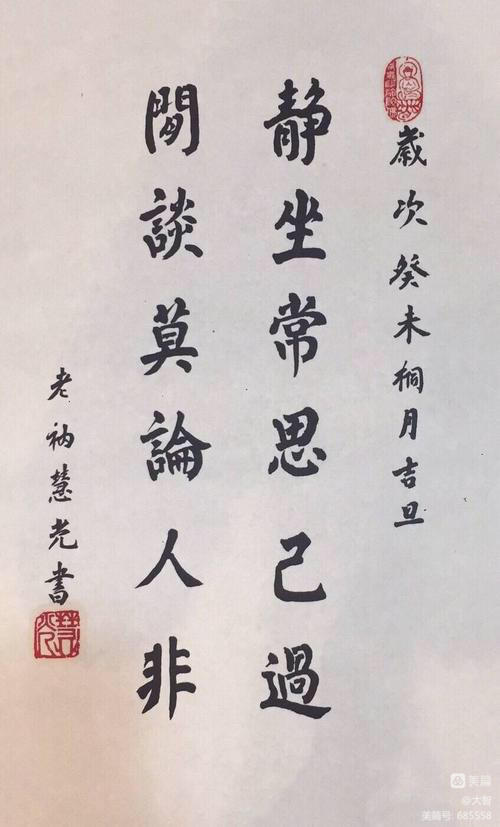 歲次癸未桐月吉旦
静坐常思己過
閒談莫論人非
老衲慧光書
美篇
@大智
美篇号: 685558